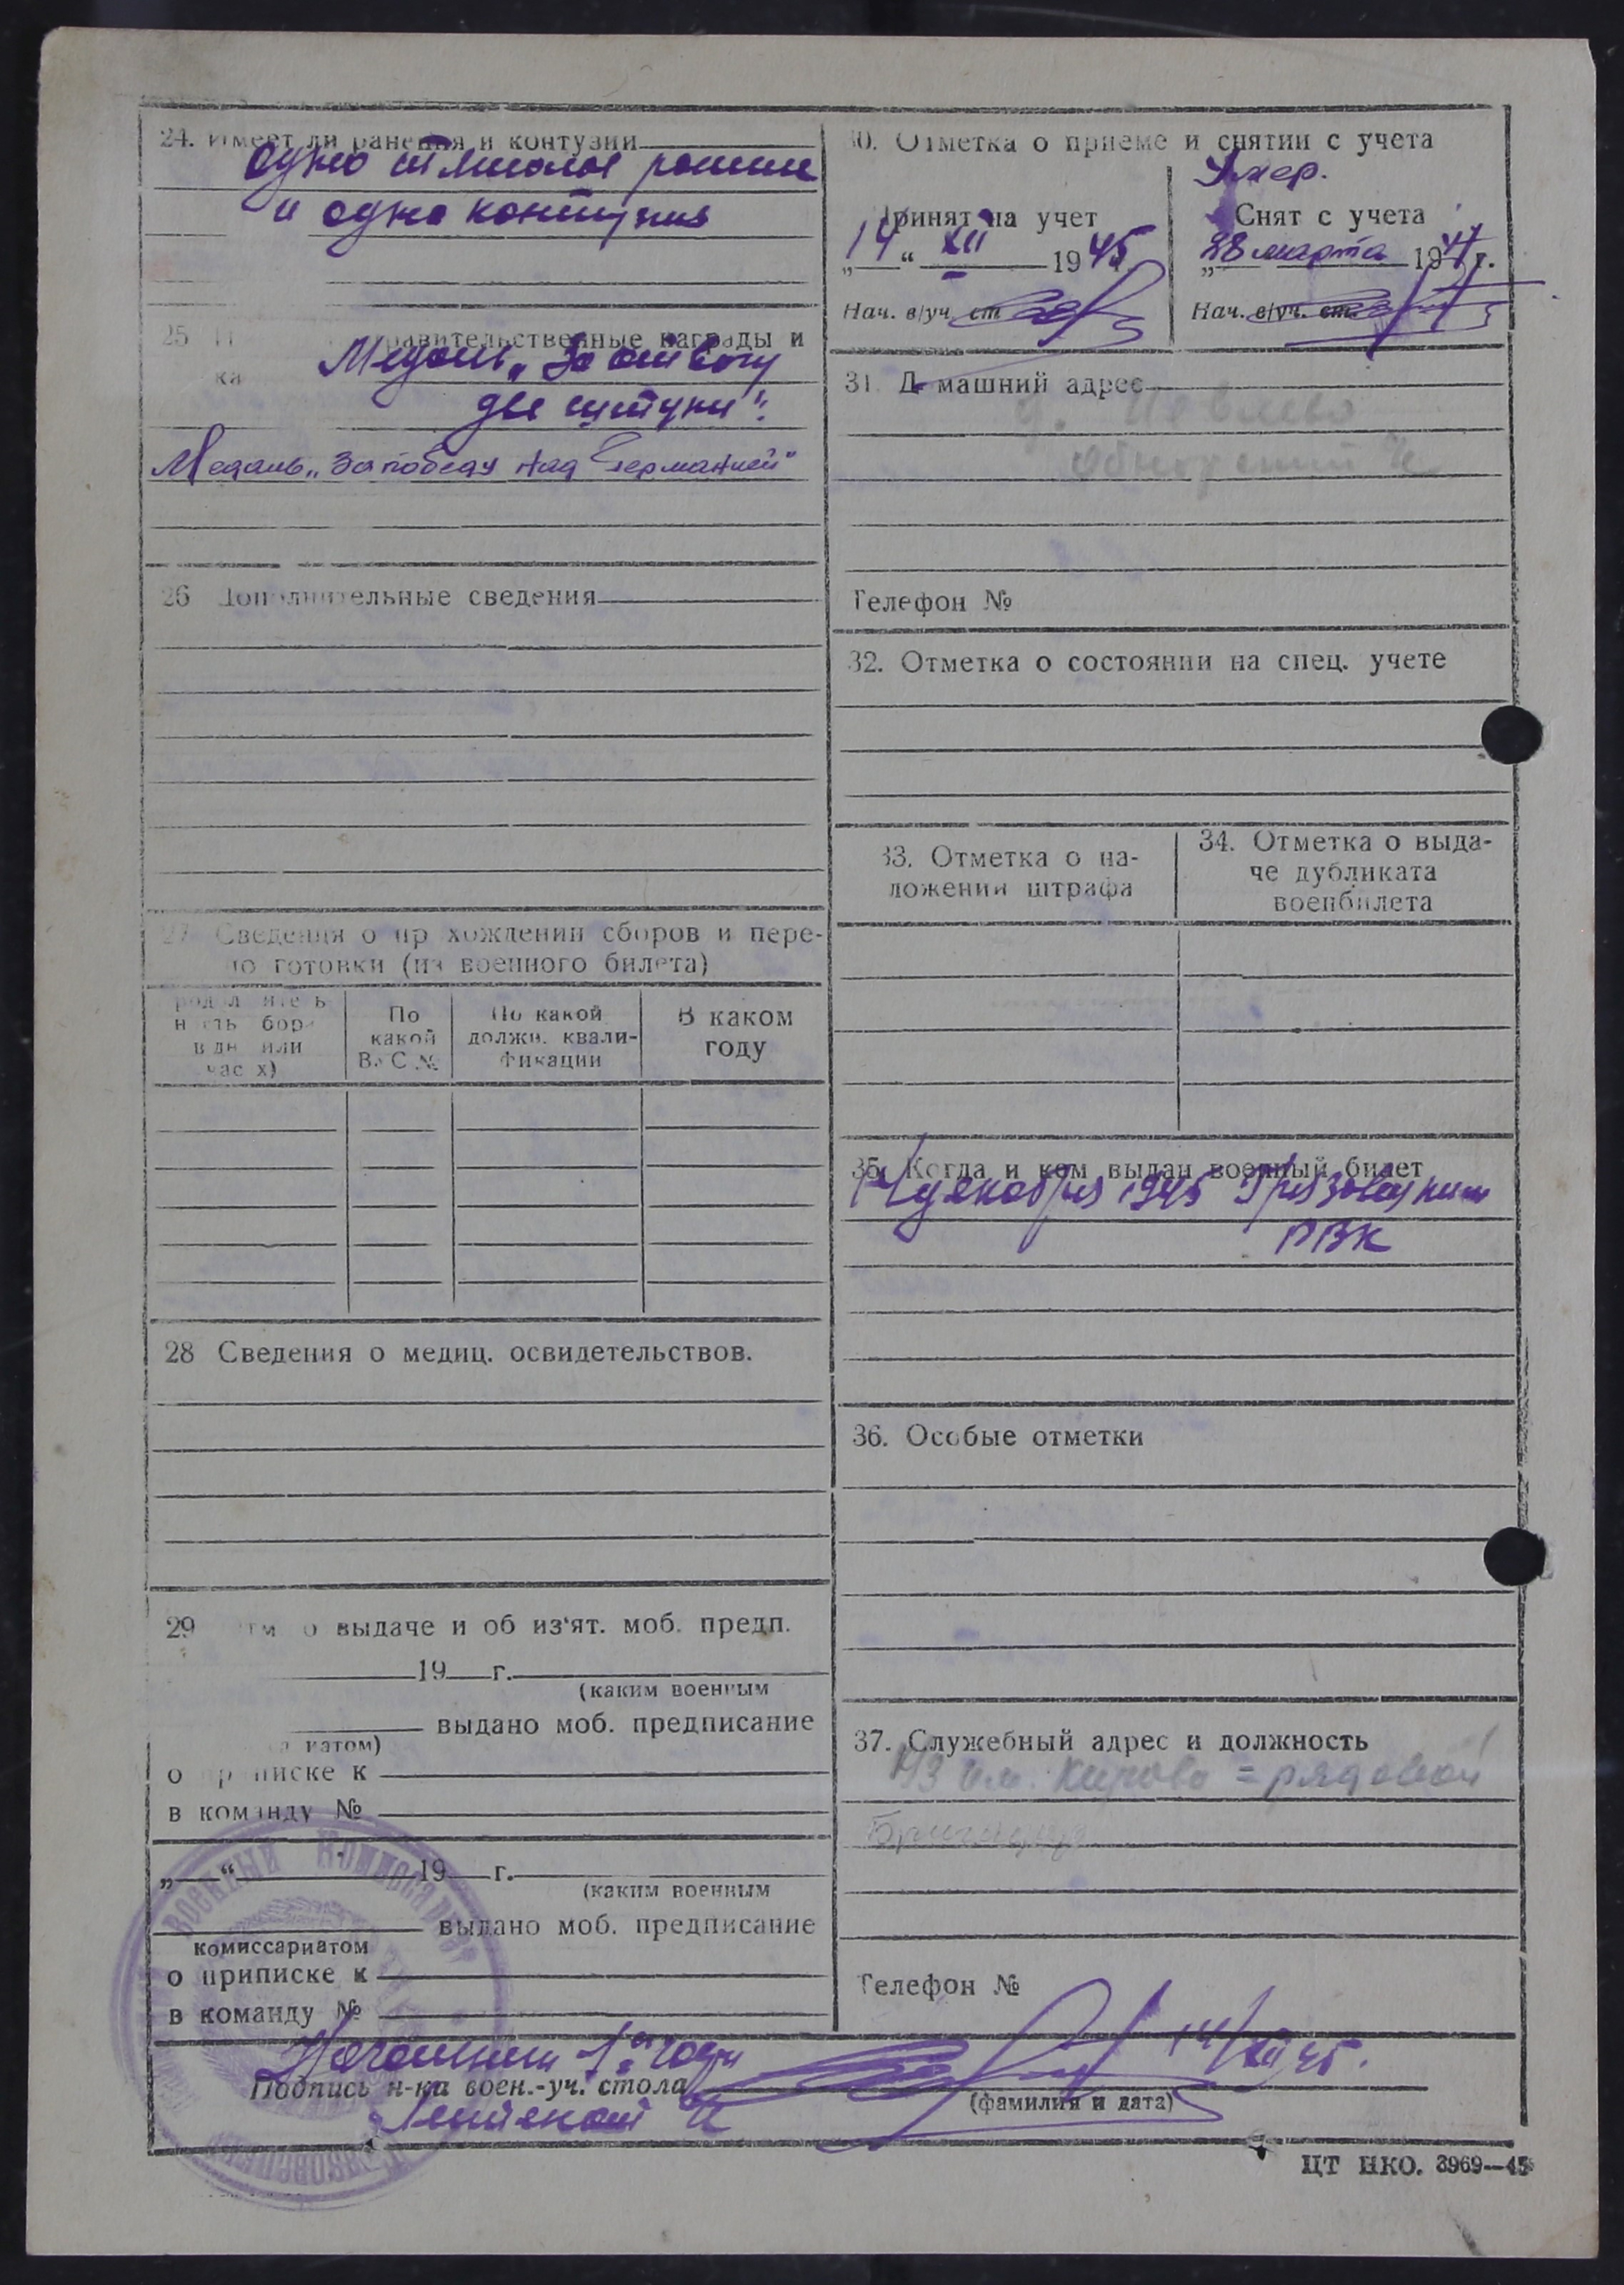 24. Имеет ли ранения и контузии
одно тяжолое ранение
и одна контузия
25 правительственные награды и
ка
Медаль „За отвагу
две штуки".
Медаль „За победу над Германией"
26 Дополнительные сведения
27 Сведения о пр хождении сборов и пере-
по готовки (из военного билета)
родолжитель
ность сбор
в дн или
час х)
По
какой
ВУС №
По какой
должн. квали-
фикации
В каком
году
28 Сведения о медиц. освидетельствов.
29 тм о выдаче и об из'ят. моб. предп.
19 г.
(каким военным
выдано моб. предписание
иатом)
о приписке к
в команду №
„ " 19 г.
(каким военным
выдано моб. предписание
комиссариатом
о приписке к
в команду №
30. Отметка о приеме и снятии с учета
Умер.
Принят на учет
14 " XII 1945
Нач. в/уч. ст
Снят с учета
„28 марта 1947 г.
Нач. в/уч. ст.
31. Д машний адрес
д.
Телефон №
32. Отметка о состоянии на спец. учете
33. Отметка о на-
ложении штрафа
34. Отметка о выда-
че дубликата
военбилета
35. Когда и кем выдан военный билет
14 декабря 1945 Грязовецким
РВК
36. Особые отметки
37. Служебный адрес и должность
им. Кирова = рядовой
Бригадир
Телефон №
Начальник 1ой части
14/XII 45.
Подпись н-ка воен.-уч. стола
(фамилия и дата)
Лейтенант
ЦТ НКО. 3969—45
ВОЕННЫЙ КОМИССАРИАТ